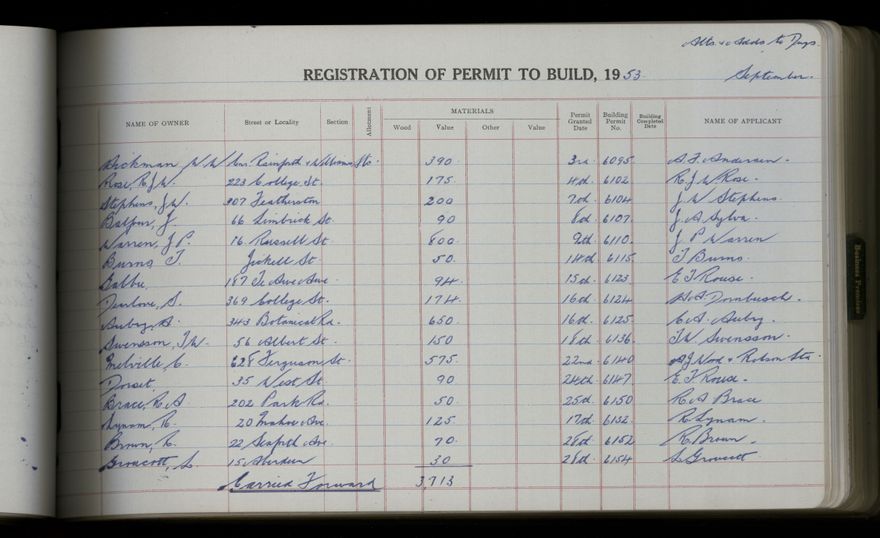 Alts. & Adds to Dwgs.
REGISTRATION OF PERMIT TO BUILD, 1953
September.
NAME OF OWNER Street or Locality Section Allotment MATERIALS Wood Value Other Value Permit Granted Date Building Permit No. Building Completed Date NAME OF APPLICANT
Dickman W W Cnr. Rainforth & Williams Sts. 390 3rd 6095 A. F. Andersen.
Rose, R J W. 223 College St. 175 4th 6102 R J W Rose.
Stephens, J W. 207 Featherston 200 7th 6104 J W Stephens.
Balfour, J. 66 Limbrick St. 90 8th 6107 J. A Sylva.
Warren, J P. 76 Russell St 800 9th 6110 J P Warren
Burns T. Jickell St. 50 14th 6115 T Burns.
187 Te Awe Awe 94 15th 6123 E T Rouse.
Denlove, S. 369 College St. 174 16th 6124 Dombusch.
Aubry, A. 343 Botanical Rd. 650 16th 6125 C. A. Aubry.
Swensson, T W. 56 Albert St 150 18th 6136 T W Swensson.
Melville C. 628 Ferguson St. 575 22nd 6140 A J Wood & Robson Sta.
Dorset, 35 West St 90 24th 6147 E. T Rouse.
Brace, R A 202 Park Rd. 50 25th 6150 R A Brace
Lynam, R. 20 Ave. 125 17th 6132 R Lynam.
Brown, R. 22 Seaforth Ave. 70 28th 6152 R Brown.
Growcott, L. 15 Aberdeen 30 28th 6154 L Growcott
Carried Forward 3,713
Business Premises